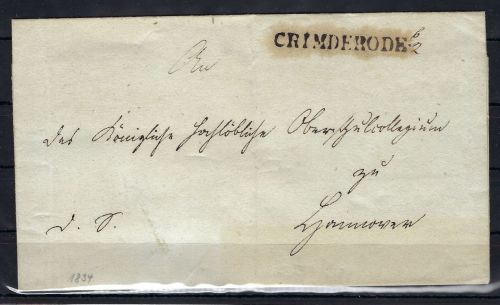 CRIMDERODE
An
das Königliche hochlöbliche Oberschulcollegium
zu
D. S. Hannover
1834